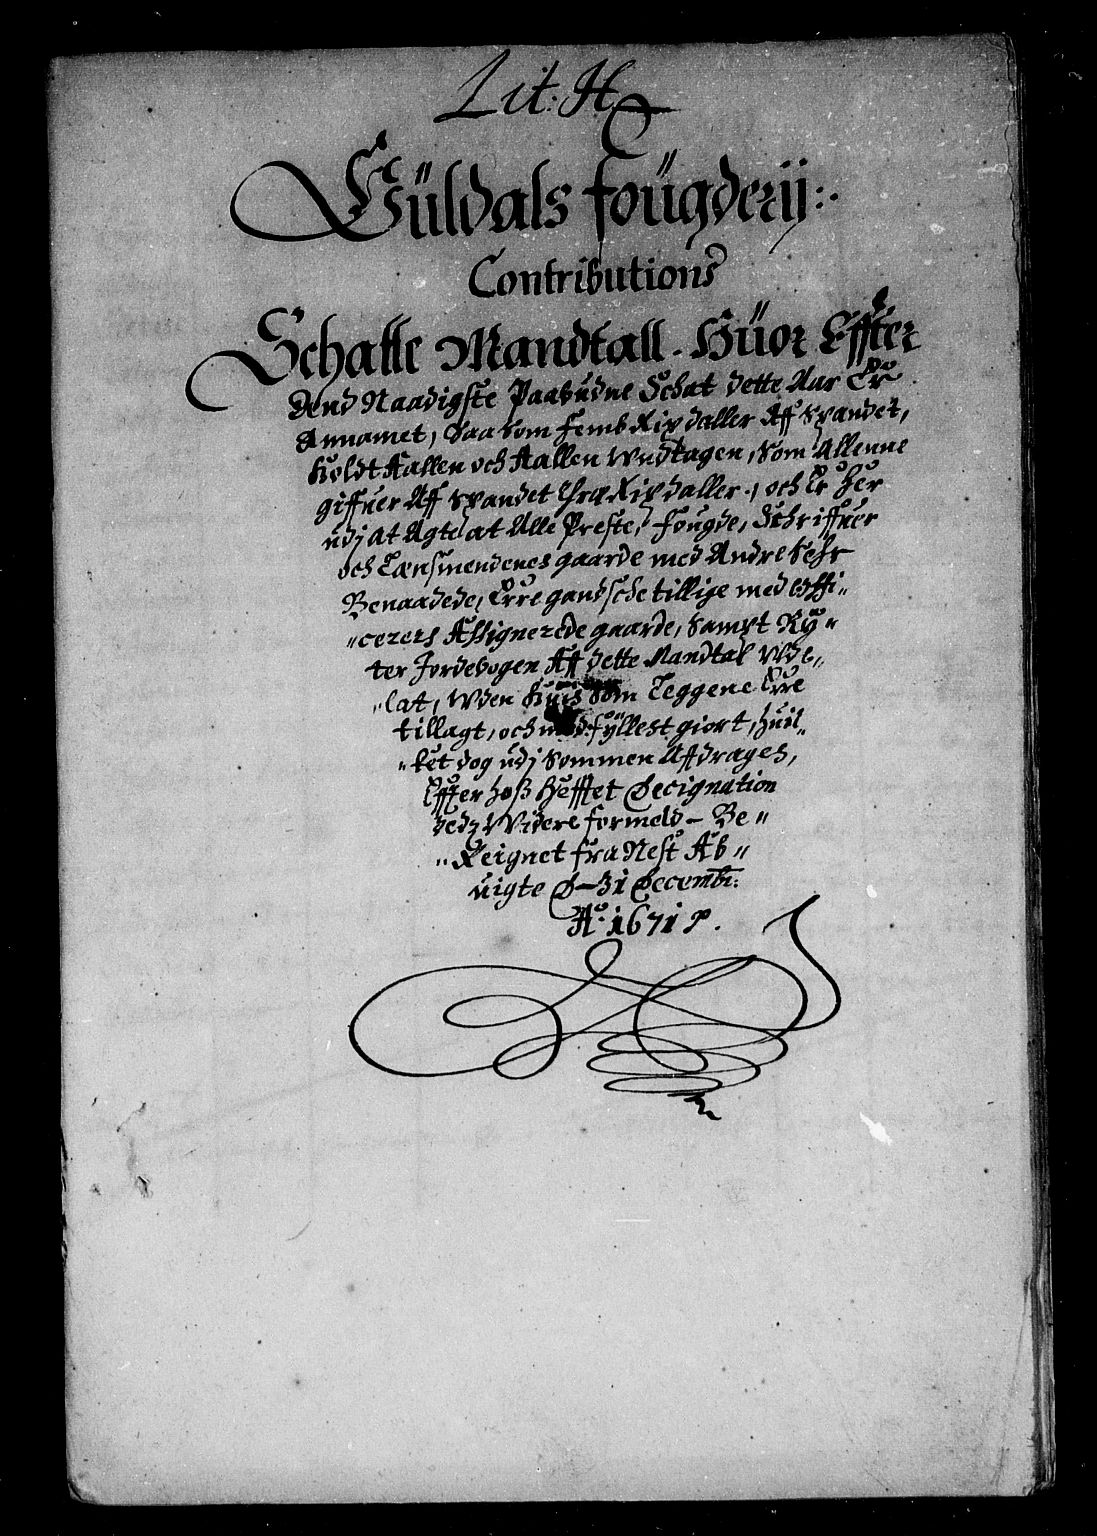 Lit: H
Güldals fougderij:.
Contributions
Schatte Mandtall. Huor Effter
dend Naadigste Paabudne Schat dette Aar Er
Annamet, saa som Femb Rixdaller Aff Spandet,
Holdt Aallen och Aallen undtagen, som Allenne
giffuer Aff Spandet Thre Rixdaller., och Er her
udj at Agte, at Alle Preste, Fougde, Schriffuer
och Lænsmendenes gaarde med Andre sehr
Benaadede, Erre gandsche tillige med Offi-
"cerers Assignerede gaarde, sampt Ry"
ter Jordebogen Aff dette Mandtal Vde,,
,,lat, uden Huis som Leggene Erre
tillagt, och med fyllest giort, huil,,
"ket dog udj Sommen Affdrages,
Effter hoß Hefftet Designation
dedz Widere formeld - Be"
"Reignet fra Nest Ab"
uigte D-31 Decembr:
Ao. 1671 P.